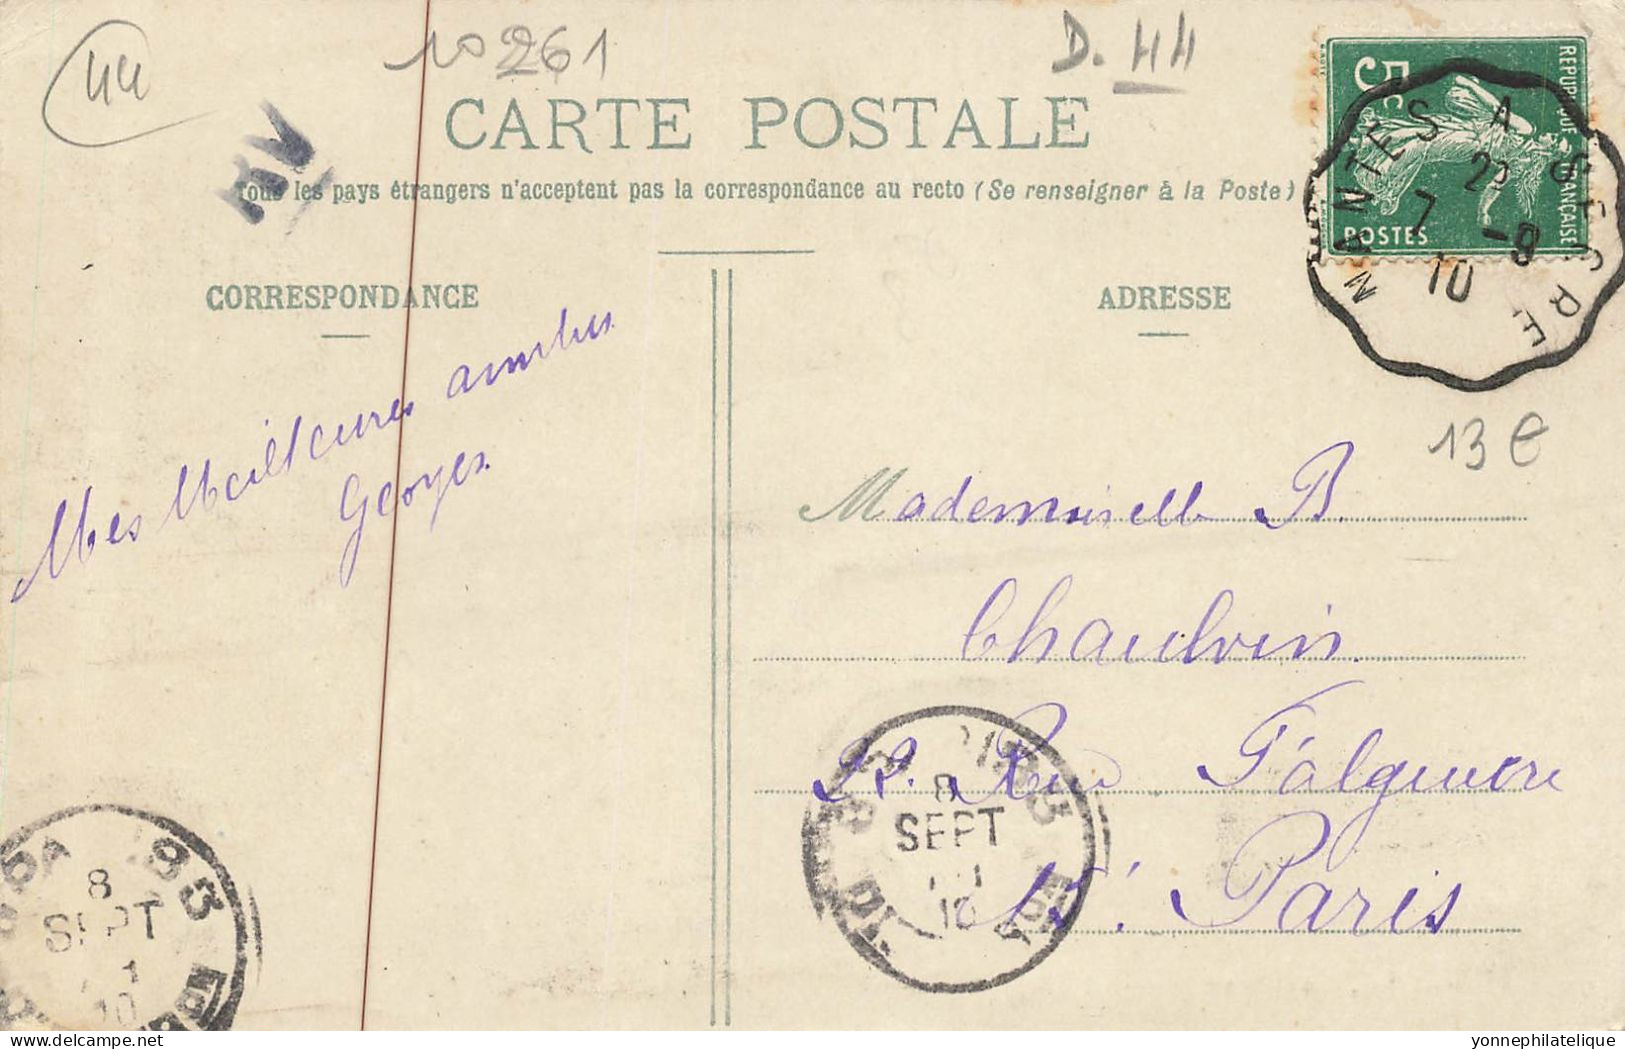 44
10261
D. 44
CARTE POSTALE
Tous les pays étrangers n'acceptent pas la correspondance au recto (Se renseigner à la Poste)
5c
REPUBLIQUE FRANÇAISE
POSTES
NANTES A SEGRE
7 -9
10
CORRESPONDANCE
ADRESSE
Mes Meilleures amitiés
Georges
13 €
Mademoiselle B.
Chauvin
22. Rue Falguière
15e Paris
8
SEPT
10
8
SEPT
10
delcampe.net
yonnephilatelique